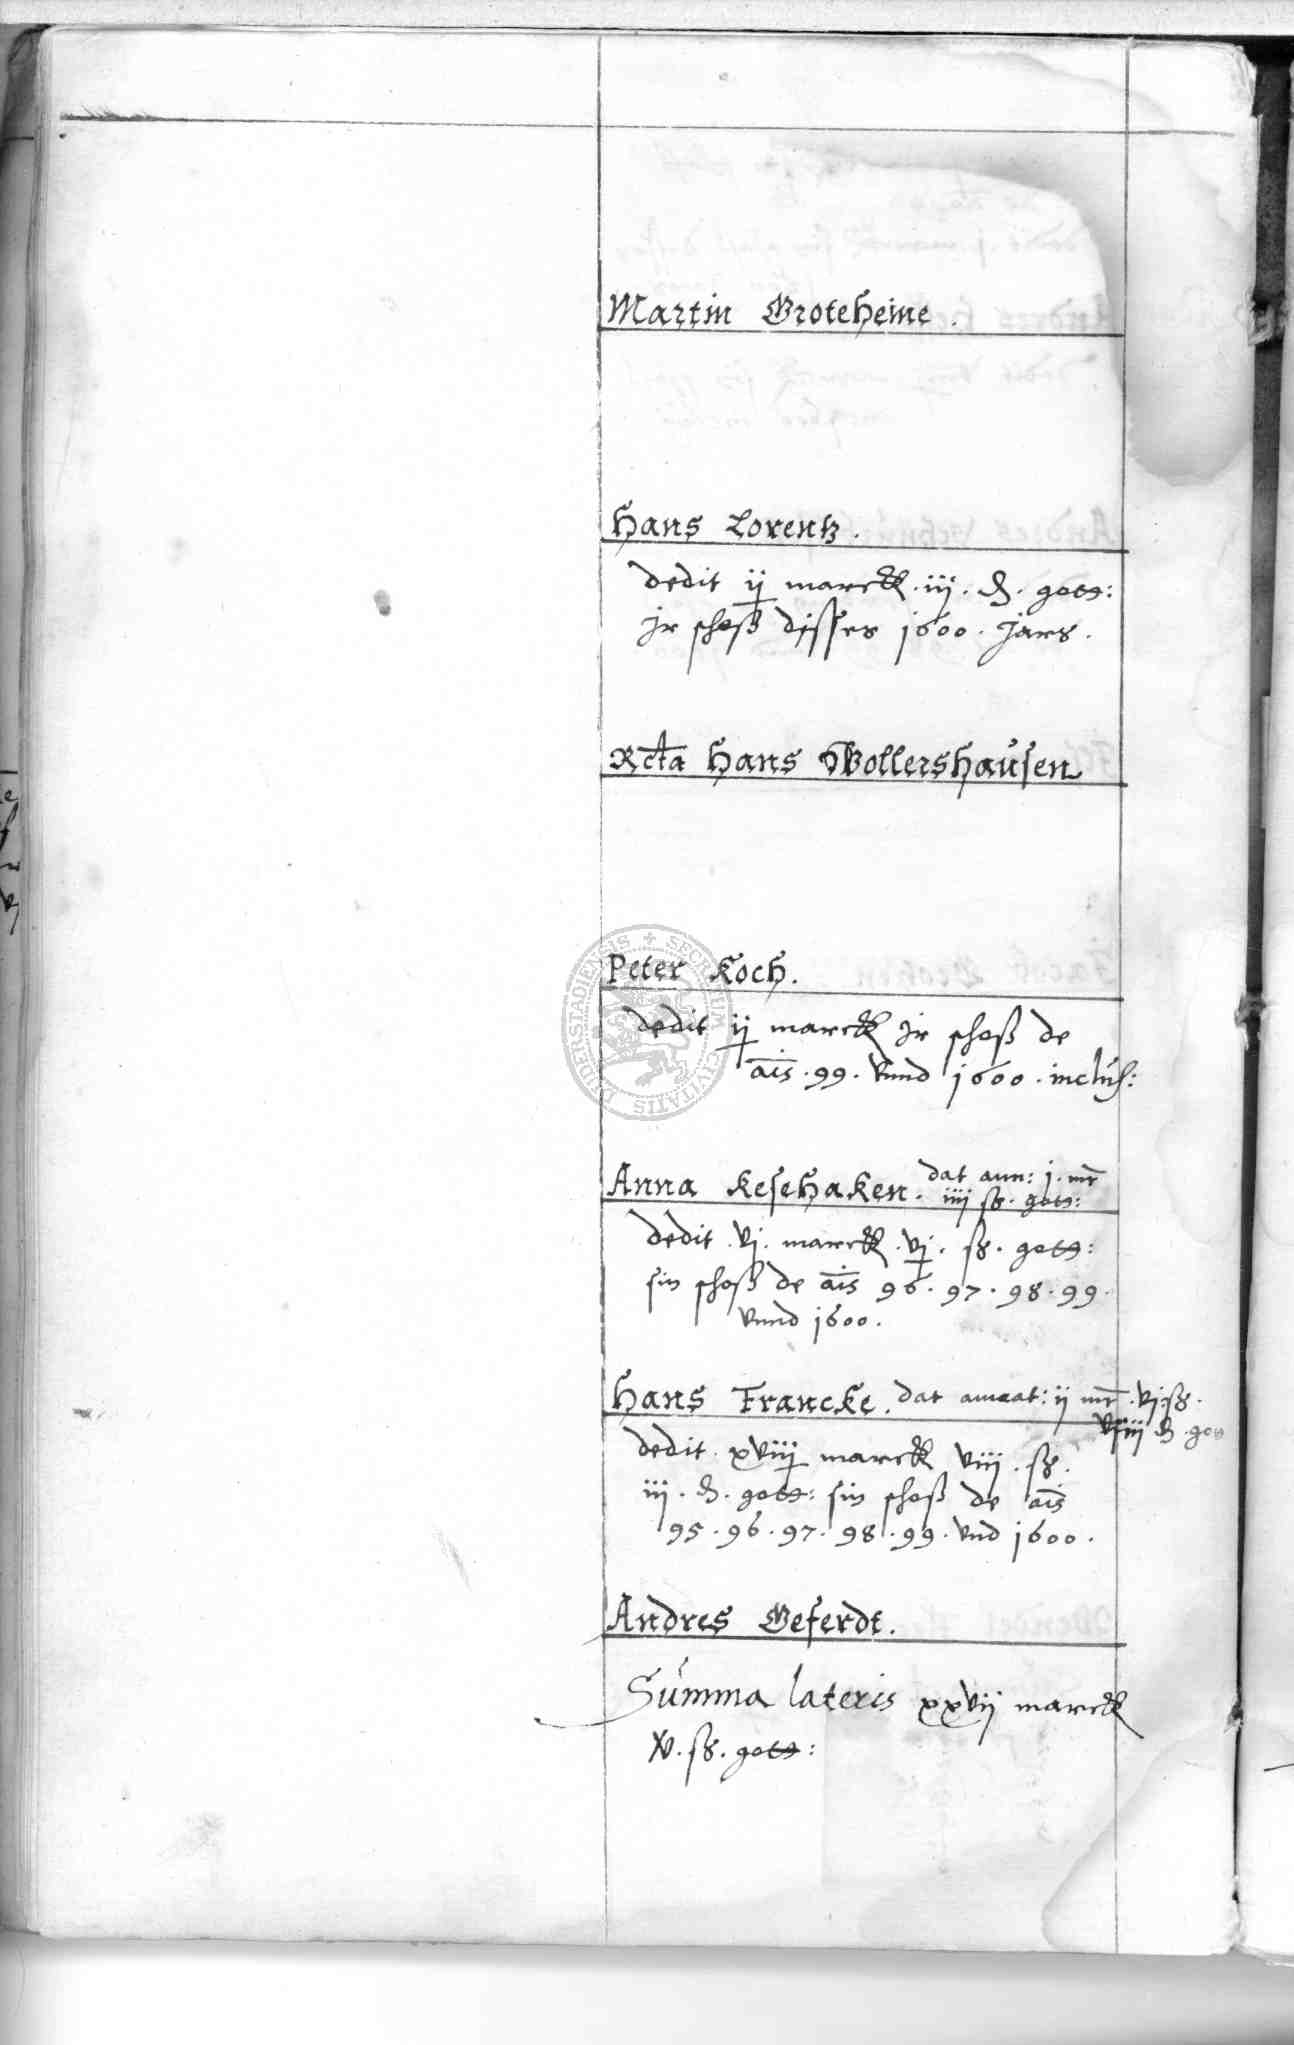 Martin Groteheine.
Hans Lorentz.
dedit ij marck . iij . ₰ . gott:
jr schoß disses 1600 . jars .
Rcta Hans Wollershausen
Peter Koch.
dedit ij marck jr schoß de
ais . 99 . vnnd 1600 . inclus:
Anna Kesehaken . dat ann: j . mr
iiij sß . gott:
dedit . vj . marck . vj . sß . gott:
sin schoß de ais 96 . 97 . 98 . 99 .
vnnd 1600 .
Hans Francke . dat annat: ij mr . vj . sß .
viij ₰ . got
dedit . xviij marck viij . sß .
iij . ₰ . gott: sin schoß de ais
95 . 96 . 97 . 98 . 99 . vnd 1600 .
Andres Geferdt .
Summa lateris xxvij marck
xv . sß . gott:
SECRETUM CIVITATIS DUDERSTADIENSIS